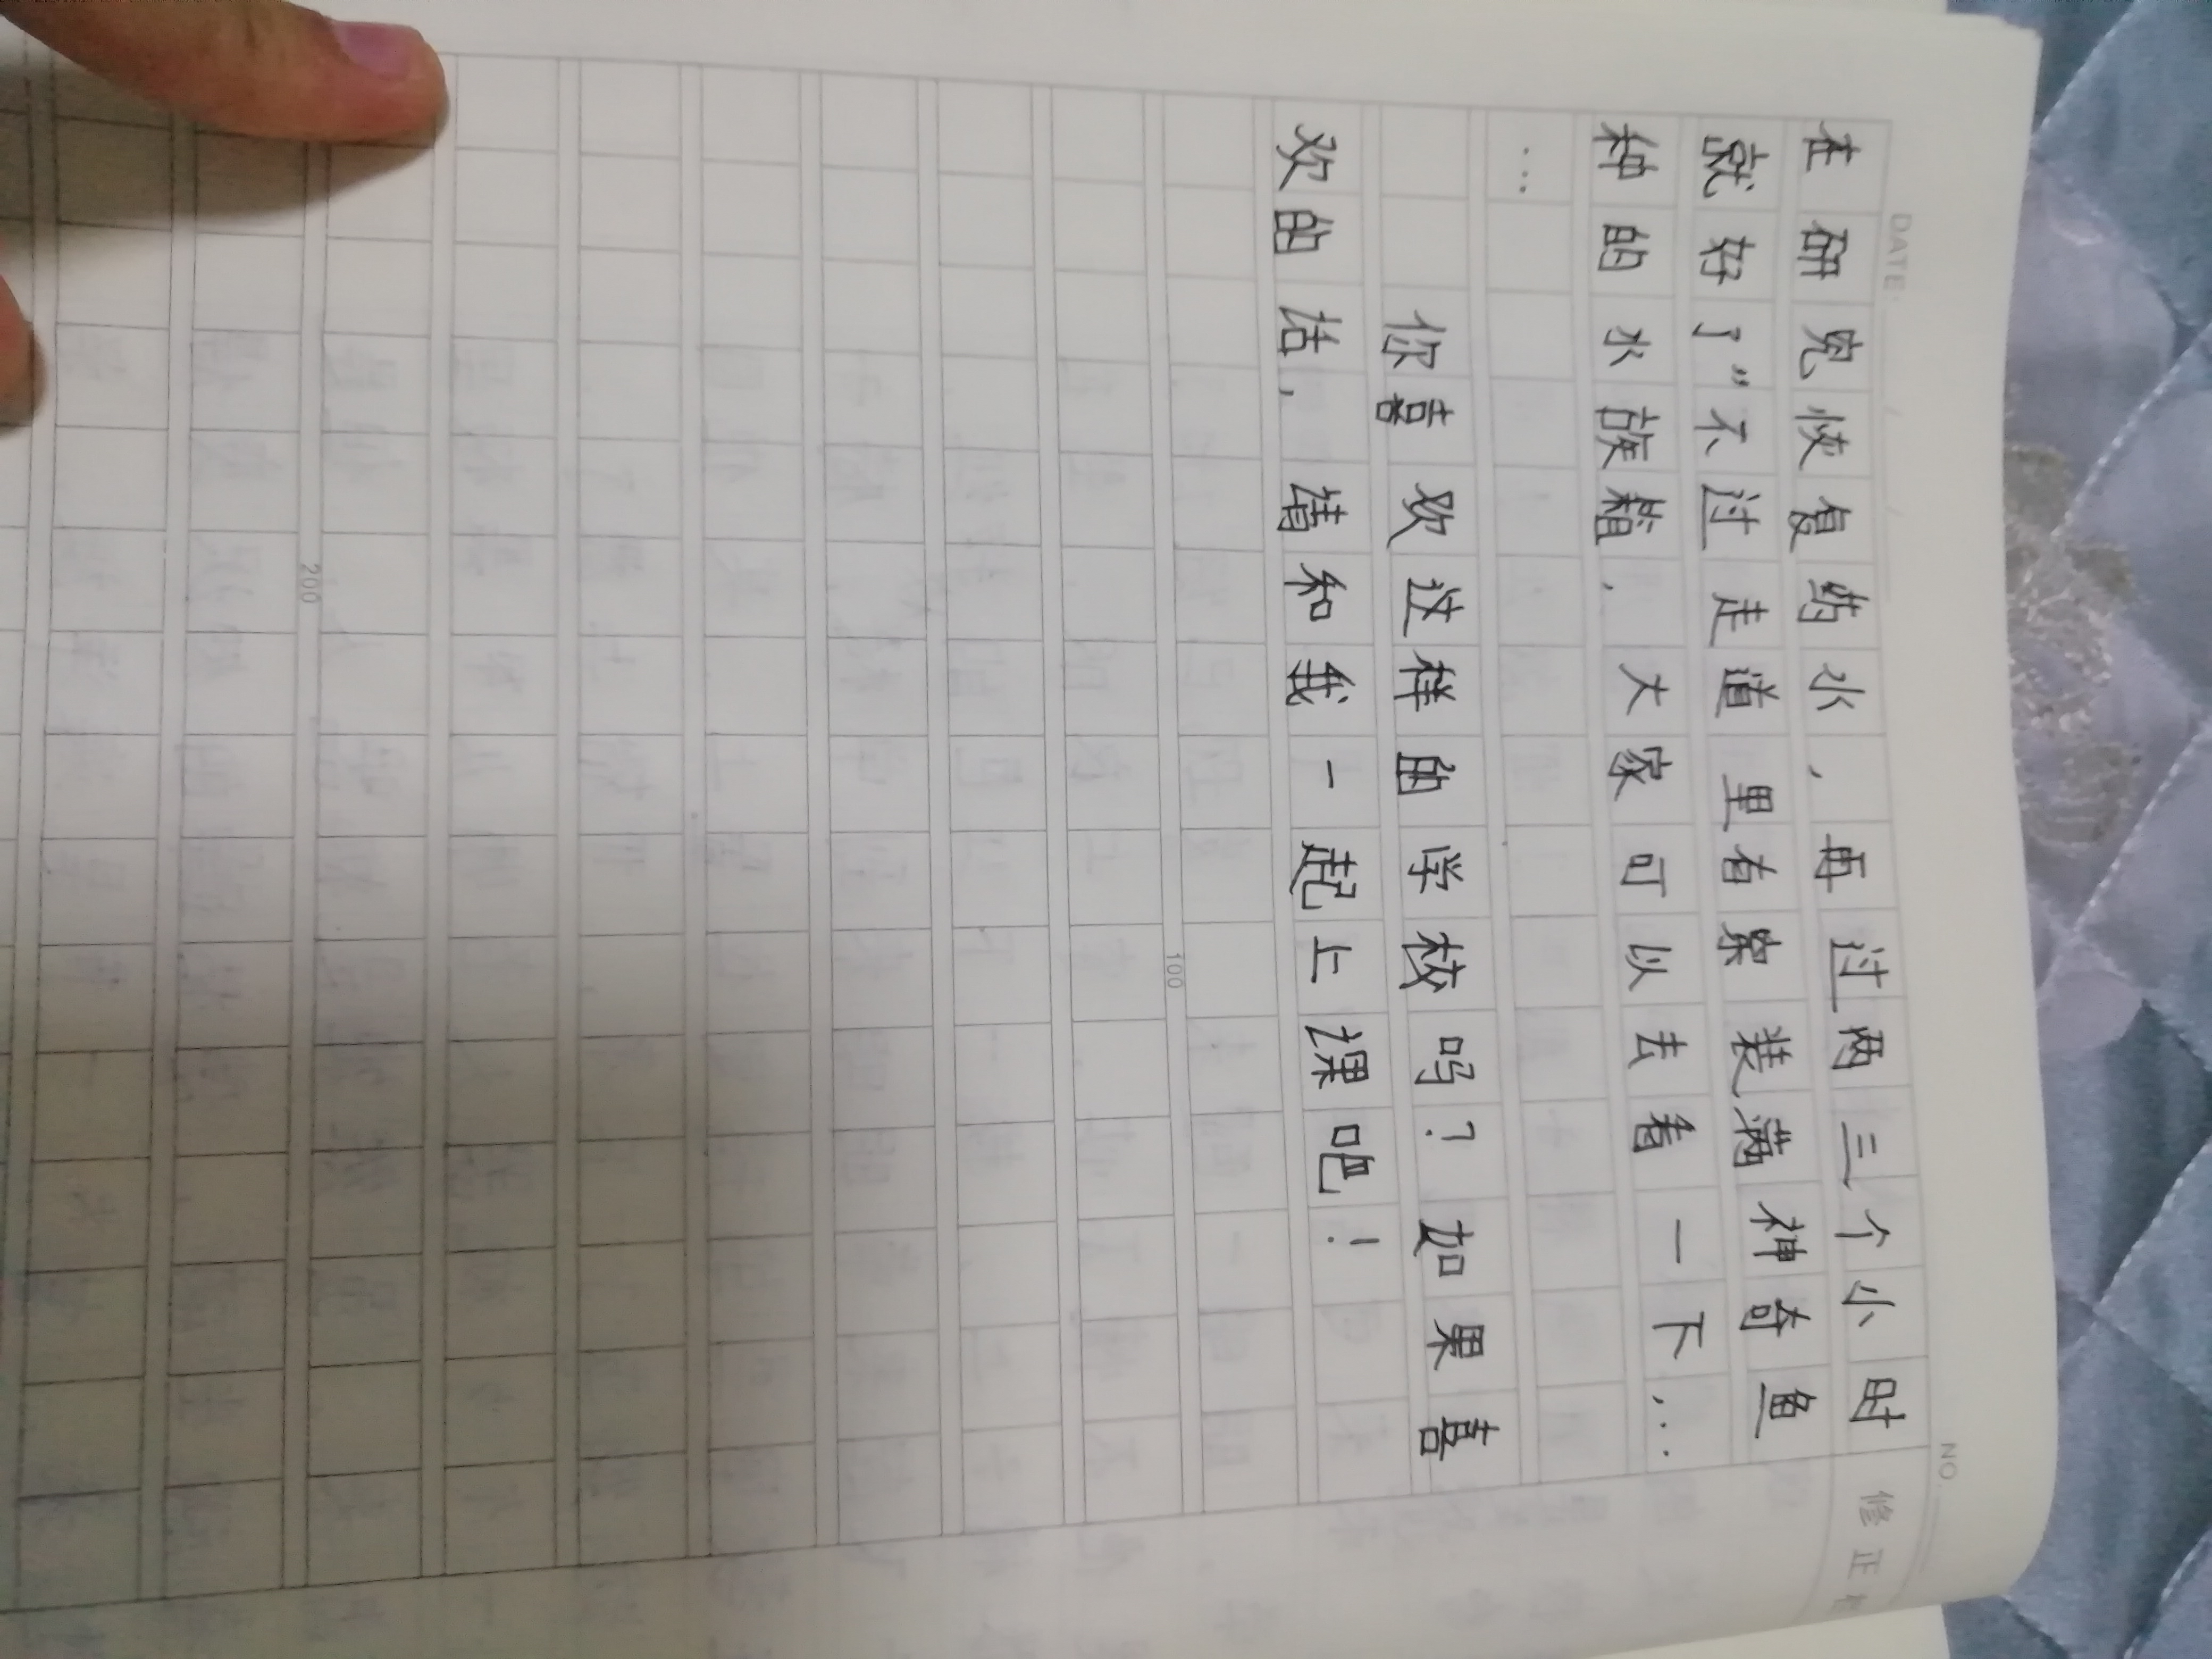 DATE:
NO.
修正栏
在研究恢复药水，再过两三个小时
就好了”不过走道里有条装满神奇鱼
种的水族箱，大家可以去看一下，…
…
你喜欢这样的学校吗？如果喜
欢的话，请和我一起上课吧！
100
200